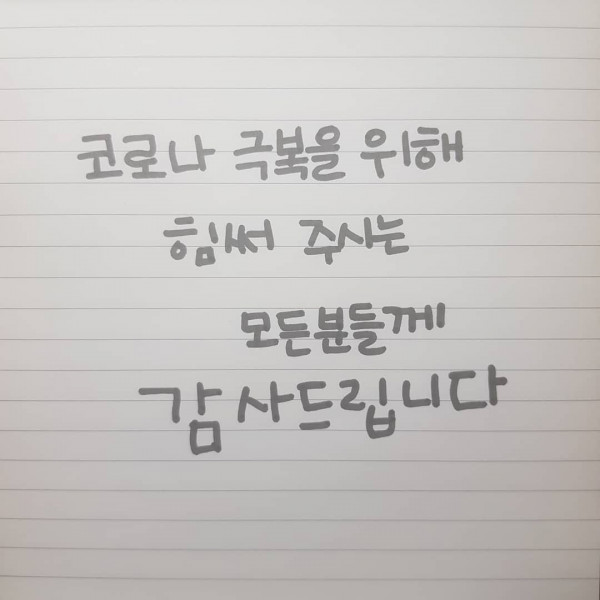 코로나 극복을 위해
힘써 주시는
모든분들께
감사드립니다